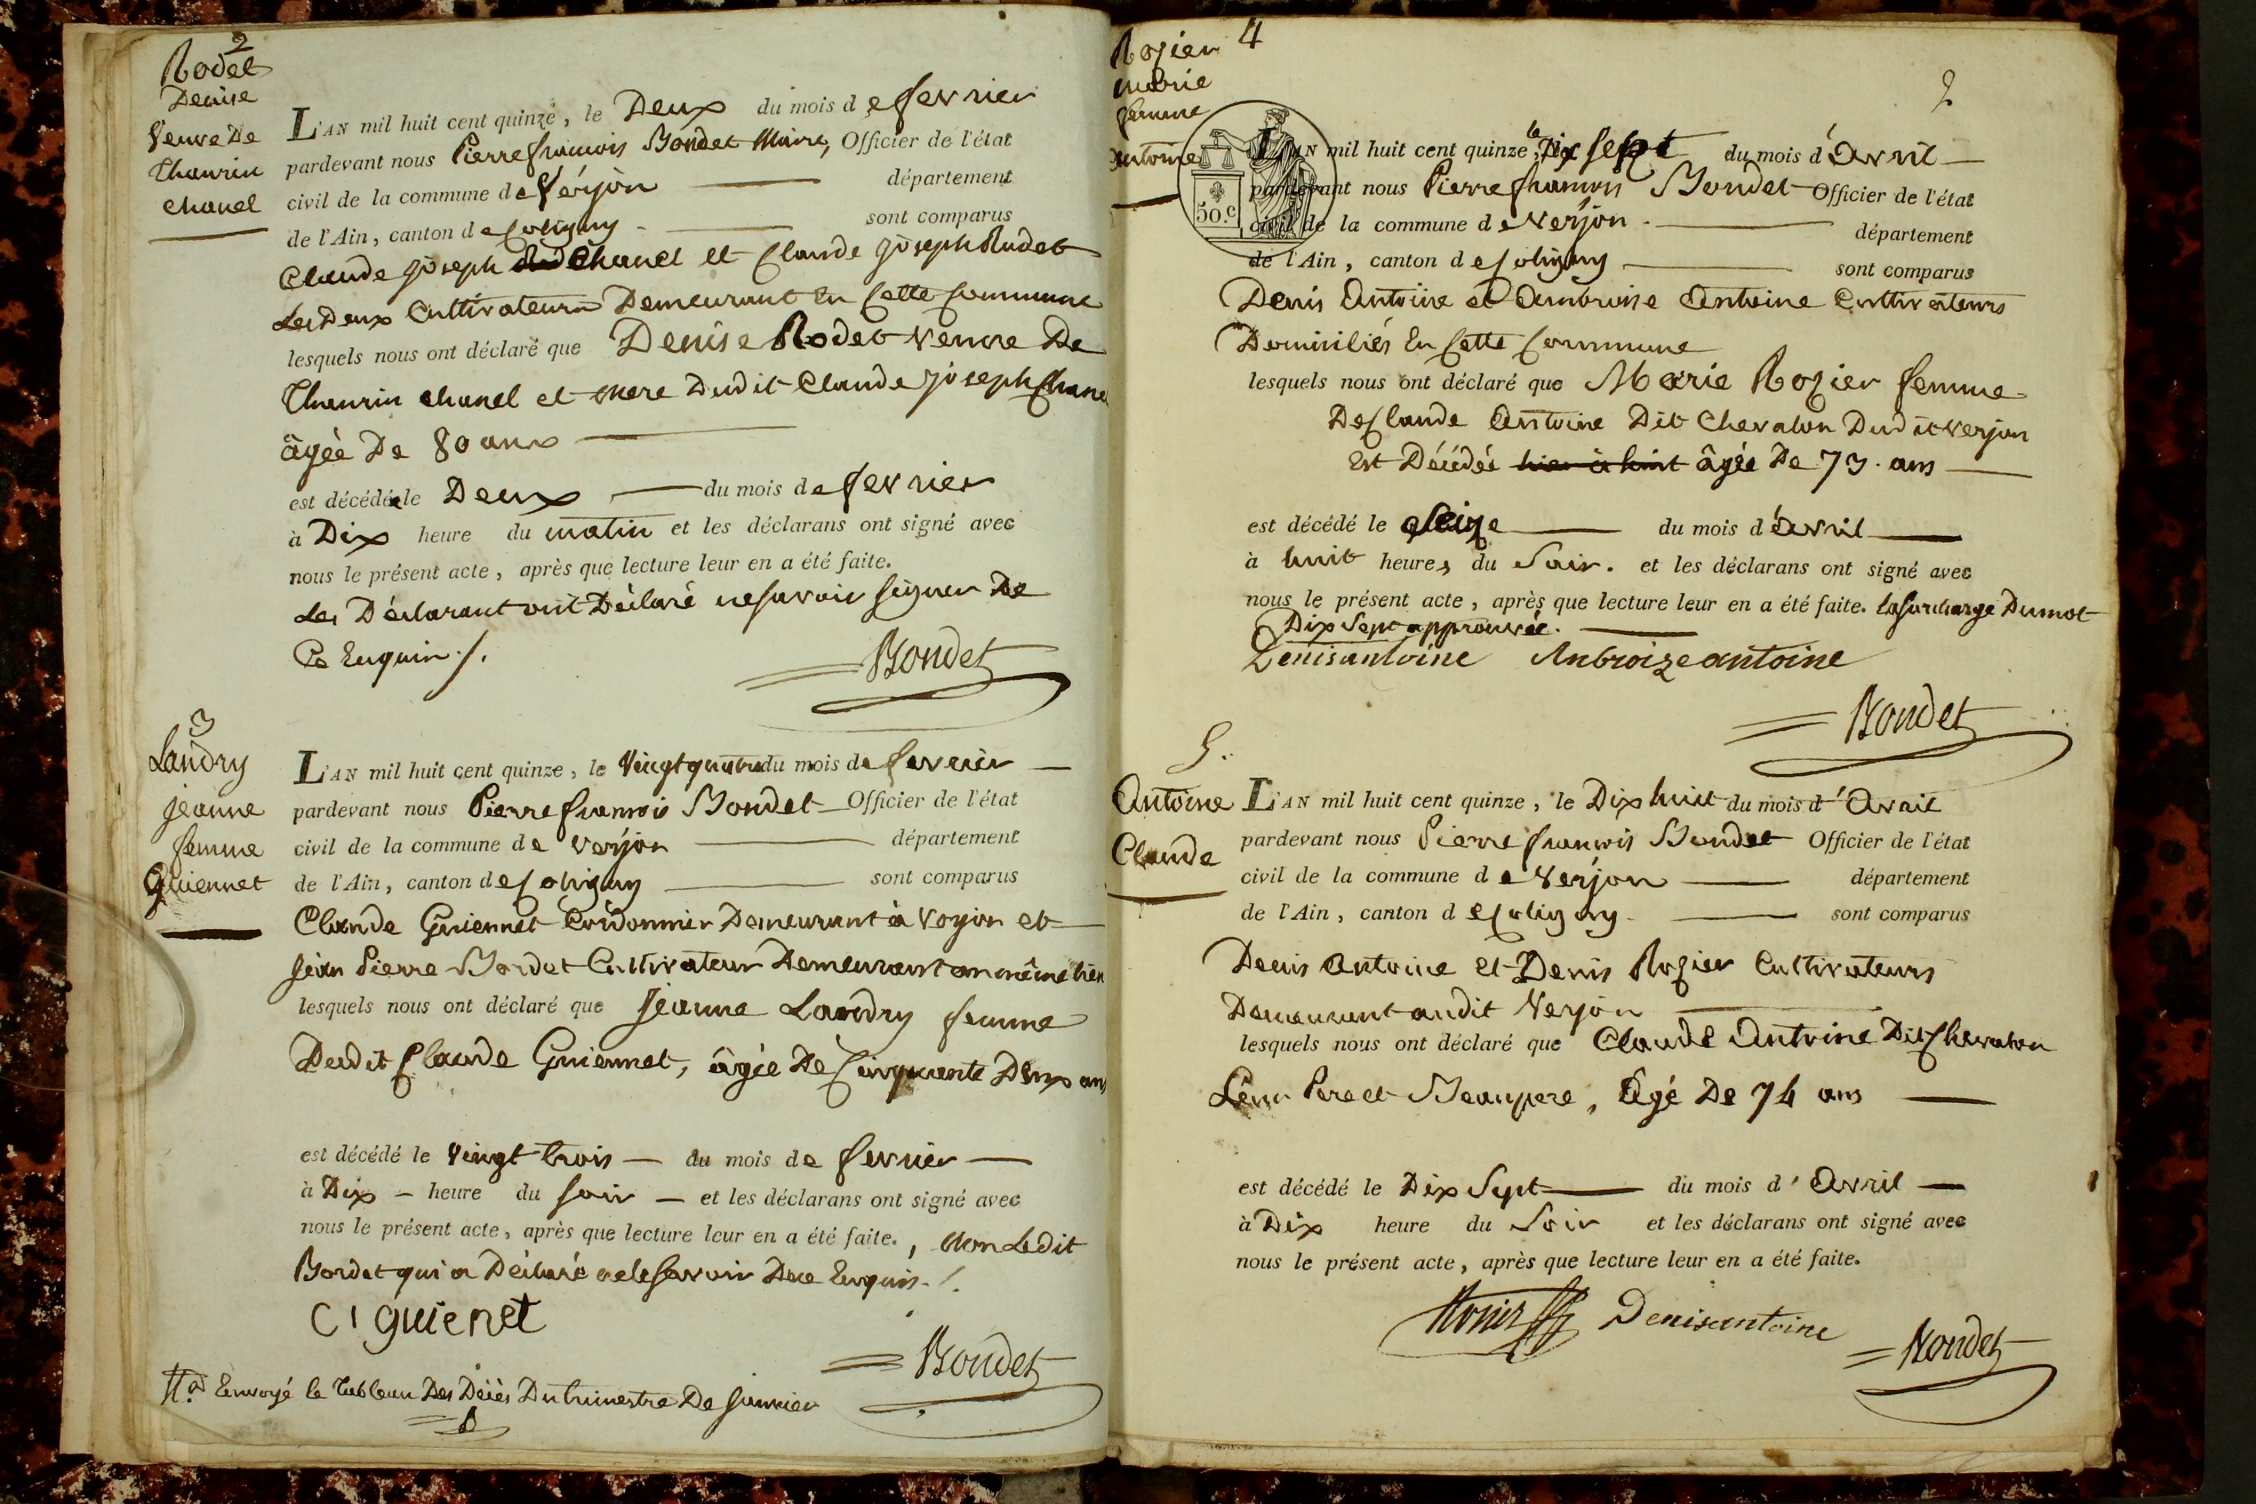 2
Rodet
Denise
Veuve De
Thaurin
Chanel
L'AN mil huit cent quinze, le Deux du mois de fevrier
pardevant nous Pierre françois Bondet Maire, Officier de l'état
civil de la commune de Verjon département
de l'Ain, canton de Coligny sont comparus
Claude joseph Chanel et Claude joseph Rudet
Les Deux Cultivateurs Demeurant En Cette Commune
lesquels nous ont déclaré que Denise Rodet Veuve De
Thaurin chanel et mere Dudit Claude joseph Chanel
âgée De 80 ans
est décédée le Deux du mois de fevrier
à Dix heure du matin et les déclarans ont signé avec
nous le présent acte, après que lecture leur en a été faite.
Les Déclarant ont Déclaré ne savoir signer De
Ce Enquin ./.
Bondet
3
Landry
jeanne
femme
Guiennet
L'AN mil huit cent quinze, le Vingt quatre du mois de fevrier
pardevant nous Pierre françois Bondet Officier de l'état
civil de la commune de Verjon département
de l'Ain, canton de Coligny sont comparus
Claude Guiennet Cordonnier Demeurant à Verjon et
jean Pierre Bordet Cultivateur Demeurant au même lieu
lesquels nous ont déclaré que jeanne Landry femme
Dudit Claude Guiennet, âgée De Cinquante Deux ans
est décédé le Vingt trois du mois de fevrier
à Dix heure du soir et les déclarans ont signé avec
nous le présent acte, après que lecture leur en a été faite., Non Ledit
Bordet qui a Déclaré ne le savoir De ce Enquis ./.
Cl guienet
Bondet
Na Envoyé le Tableau Des Décès Du trimestre De janvier
4
Rozier
marie
femme
antoine
2
50.c
L'AN mil huit cent quinze, le Dix sept du mois d'Avril
pardevant nous Pierre françois Bondet Officier de l'état
civil de la commune de Verjon département
de l'Ain, canton de Coligny sont comparus
Denis Antoine et Ambroise Antoine Cultivateurs
Domiciliés En Cette Commune
lesquels nous ont déclaré que Marie Rozier femme
De Claude Antoine Dit Chevalon Dudit Verjon
Est Décédée hier à huit âgée De 73 ans
est décédé le Seize du mois d'Avril
à huit heures du Soir. et les déclarans ont signé avec
nous le présent acte, après que lecture leur en a été faite. La surcharge Du mot
Dix sept approuvée.
Denisantoine Anbroizeantoine
Bondet
5.
Antoine
Claude
L'AN mil huit cent quinze, le Dix huit du mois d'Avril
pardevant nous Pierre françois Bondet Officier de l'état
civil de la commune de Verjon département
de l'Ain, canton de Coligny sont comparus
Denis Antoine Et Denis Rozier Cultivateurs
Demeurant audit Verjon
lesquels nous ont déclaré que Claude Antoine Dit Chevalon
Leur Pere et Beaupere, Agé De 74 ans
est décédé le Dix Sept du mois d'Avril
à Dix heure du Soir et les déclarans ont signé avec
nous le présent acte, après que lecture leur en a été faite.
Denisantoine
Bondet